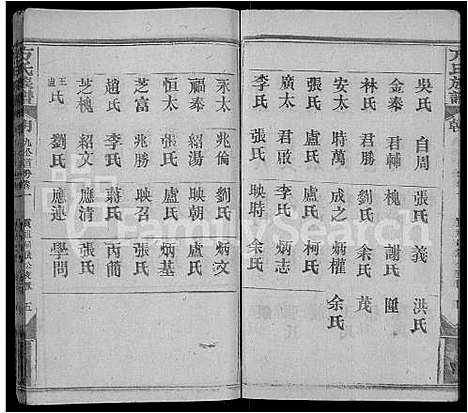 万氏族譜
吳氏 自周 張氏 義 洪氏
金奉 君輔 槐 謝氏
林氏 君 劉氏 余氏 茂
安太 時萬 成之 炳權 余氏
張氏 盧氏 盧氏 柯氏
廣太
李氏 張氏 映時 余氏
永太 兆倫 劉氏 炳文
福奉 紹湯 映朝 盧氏
恒太 盧氏 盧氏 炳基
芝富 兆勝 映召 張氏
趙氏 李氏 蔣氏 丙簡
芝槐 紹文 應清 張氏
王盧氏 劉氏 應連 學問
FamilySearch